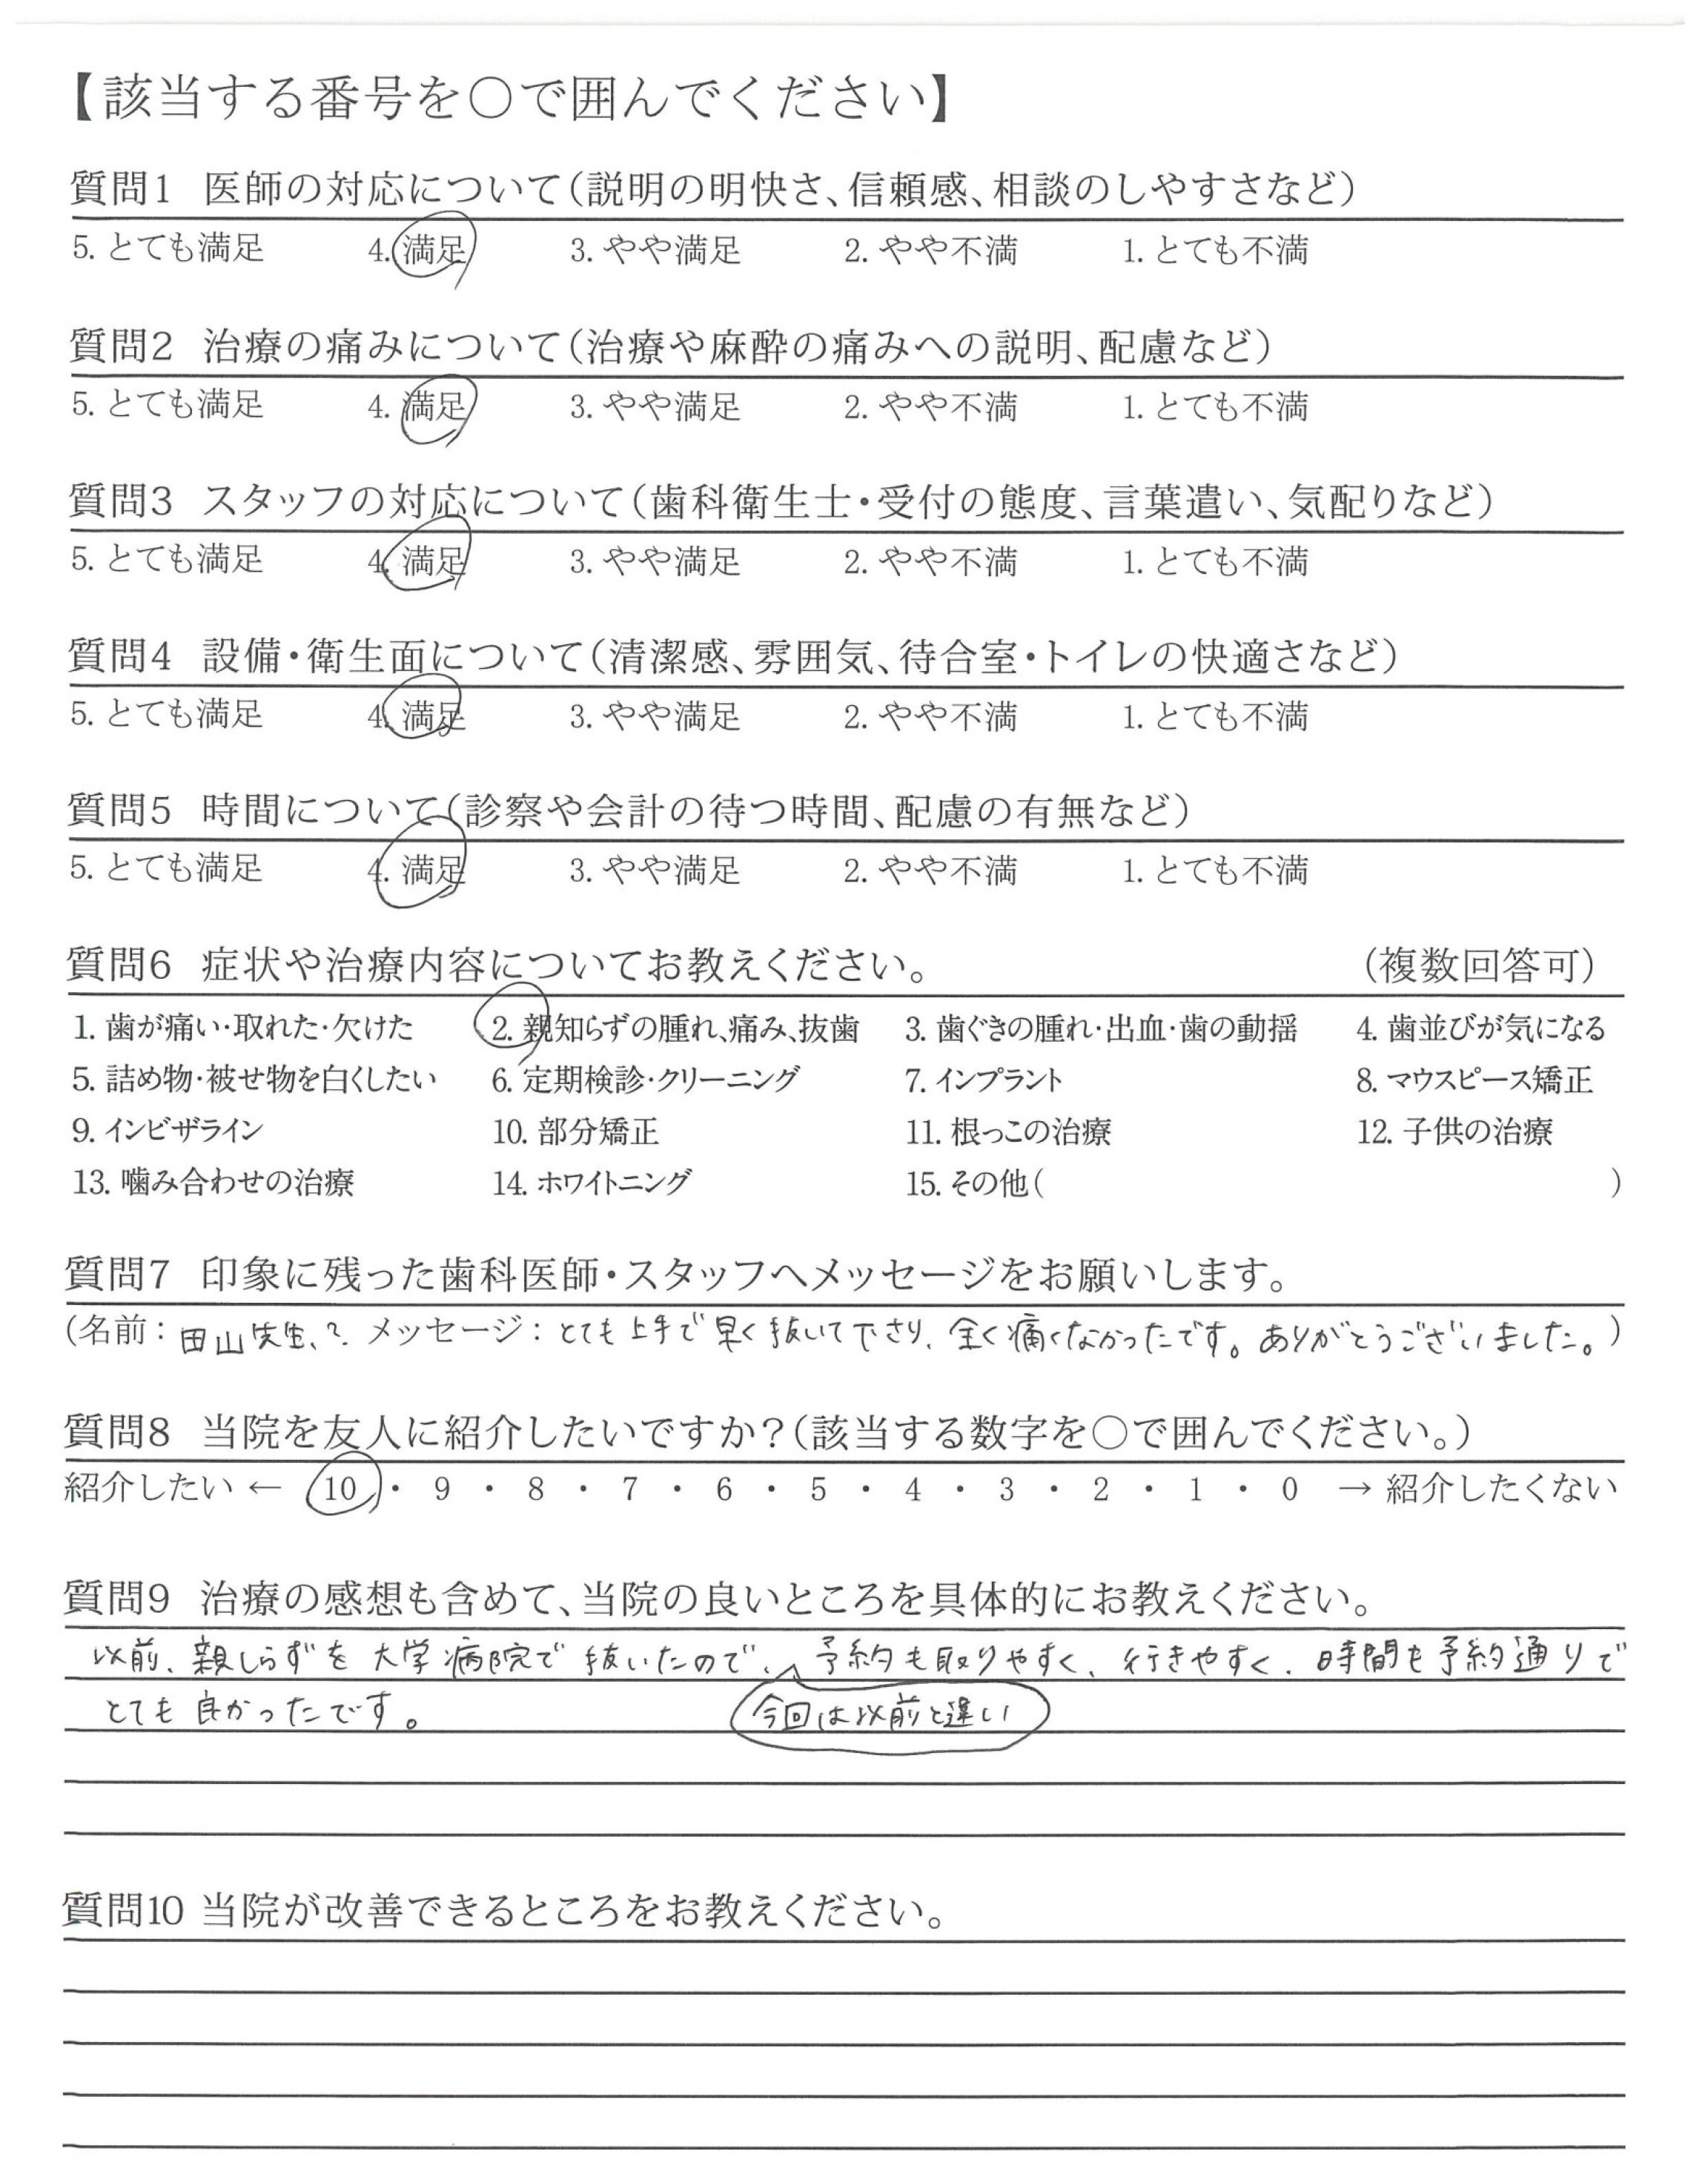 【該当する番号を○で囲んでください】
質問1 医師の対応について(説明の明快さ、信頼感、相談のしやすさなど)
5. とても満足 4. 満足 3. やや満足 2. やや不満 1. とても不満
質問2 治療の痛みについて(治療や麻酔の痛みへの説明、配慮など)
5. とても満足 4. 満足 3. やや満足 2. やや不満 1. とても不満
質問3 スタッフの対応について(歯科衛生士・受付の態度、言葉遣い、気配りなど)
5. とても満足 4. 満足 3. やや満足 2. やや不満 1. とても不満
質問4 設備・衛生面について(清潔感、雰囲気、待合室・トイレの快適さなど)
5. とても満足 4. 満足 3. やや満足 2. やや不満 1. とても不満
質問5 時間について(診察や会計の待つ時間、配慮の有無など)
5. とても満足 4. 満足 3. やや満足 2. やや不満 1. とても不満
質問6 症状や治療内容についてお教えください。 (複数回答可)
1. 歯が痛い・取れた・欠けた 2. 親知らずの腫れ、痛み、抜歯 3. 歯ぐきの腫れ・出血・歯の動揺 4. 歯並びが気になる
5. 詰め物・被せ物を白くしたい 6. 定期検診・クリーニング 7. インプラント 8. マウスピース矯正
9. インビザライン 10. 部分矯正 11. 根っこの治療 12. 子供の治療
13. 噛み合わせの治療 14. ホワイトニング 15. その他( )
質問7 印象に残った歯科医師・スタッフへメッセージをお願いします。
(名前：田山先生、? メッセージ：とても上手で早く抜いて下さり、全く痛くなかったです。ありがとうございました。)
質問8 当院を友人に紹介したいですか？(該当する数字を○で囲んでください。)
紹介したい ← 10 ・ 9 ・ 8 ・ 7 ・ 6 ・ 5 ・ 4 ・ 3 ・ 2 ・ 1 ・ 0 → 紹介したくない
質問9 治療の感想も含めて、当院の良いところを具体的にお教えください。
以前、親しらずを大学病院で抜いたので、予約も取りやすく、行きやすく、時間も予約通りで
とても良かったです。 今回は以前と違い
質問10 当院が改善できるところをお教えください。